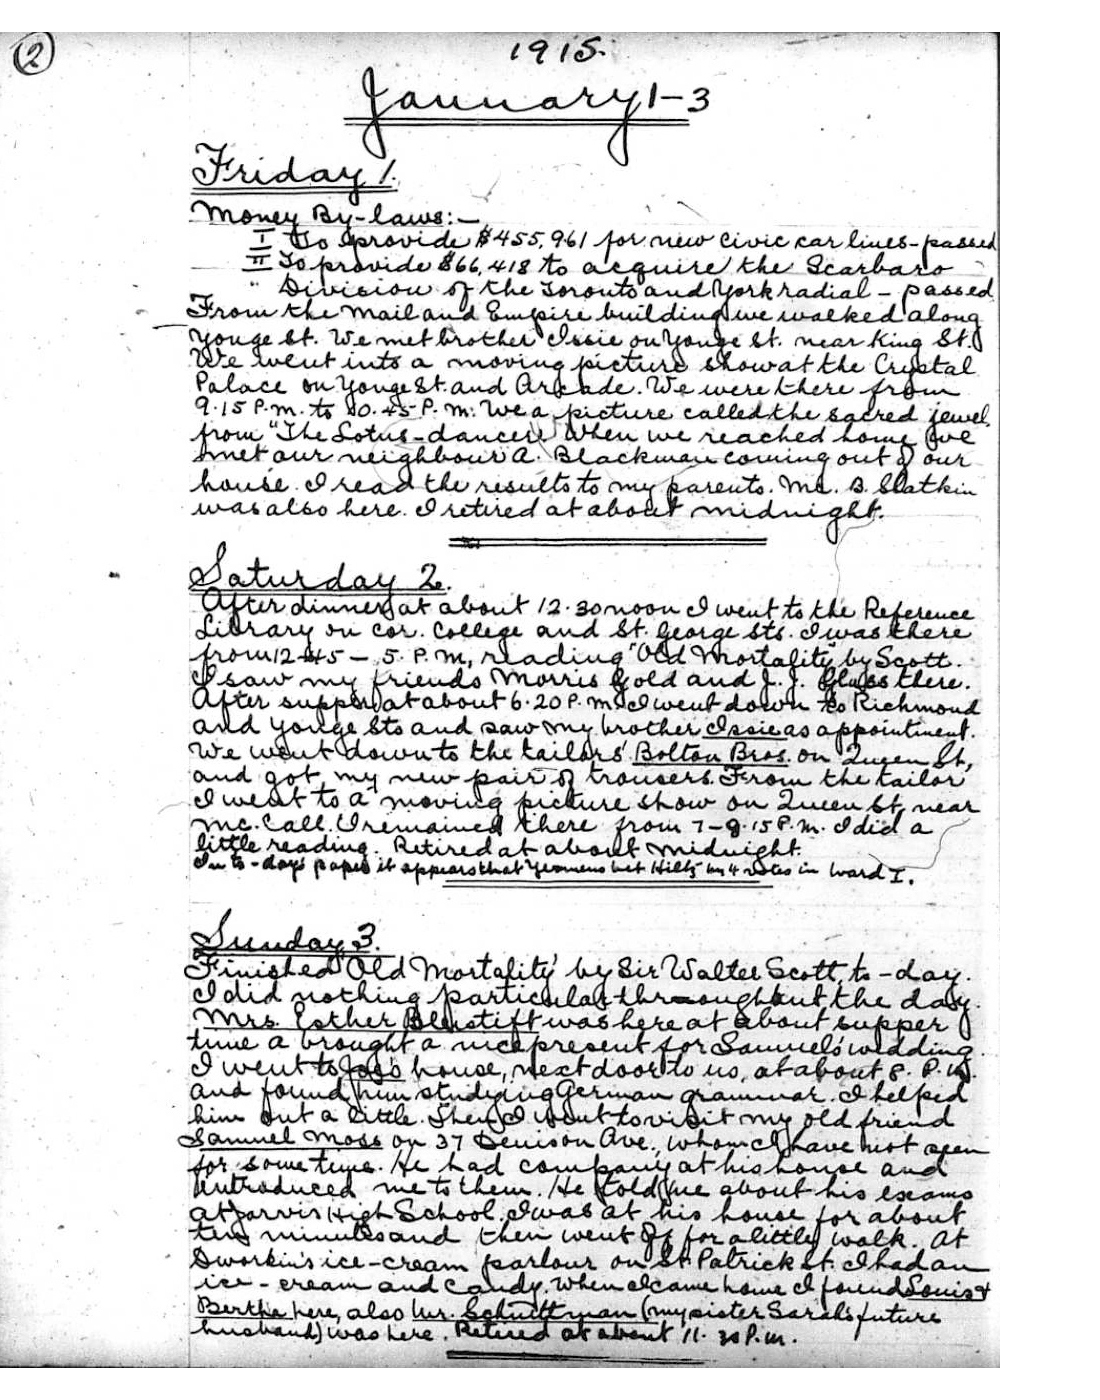 2
1915.
January 1-3
Friday 1.
Money By-laws:—
I To provide $455,961 for new civic car lines - passed
II To provide $66,418 to acquire the Scarboro
" Division of the Toronto and York radial - passed
From the Mail and Empire building we walked along
Yonge St. We met brother Issie on Yonge St. near King St.
We went into a moving picture show at the Crystal
Palace on Yonge St. and Arcade. We were there from
9.15 P.m. to 10.45 P.m. We a picture called the sacred jewel
from "The Lotus-dancer." When we reached home we
met our neighbour A. Blackman coming out of our
house. I read the results to my parents. Mr. B. Slatkin
was also here. I retired at about midnight.
Saturday 2.
After dinner at about 12.30 noon I went to the Reference
Library on cor. College and St. George sts. I was there
from 12.45 — 5. P.M, reading "Old Mortality" by Scott.
I saw my friends Morris Gold and J. J. Glass there.
After supper at about 6.20 P.m. I went down to Richmond
and Yonge Sts and saw my brother Issie as appointment.
We went down to the tailors' Bolton Bros. on Queen St,
and got my new pair of trousers. From the tailor
I went to a moving picture show on Queen St, near
Mc.Call. I remained there from 7-9.15 P.m. I did a
little reading. Retired at about midnight.
In to-day's paper it appears that Yeomens bet Hiltz by 4 votes in Ward I.
Sunday 3.
Finished 'Old Mortality' by Sir Walter Scott, to-day.
I did nothing particular throughout the day.
Mrs. Esther Bleistift was here at about supper
time a brought a nice present for Samuel's wedding.
I went to Joe's house, next door to us, at about 8. P.M.
and found him studying German grammar. I helped
him out a little. Then I went to visit my old friend
Samuel Moss on 37 Denison Ave., whom I have not seen
for some time. He had company at his house and
introduced me to them. He told me about his exams
at Jarvis High School. I was at his house for about
ten minutes and then went off for a little walk. At
Dworkin's ice-cream parlour on St. Patrick st. I had an
ice-cream and candy. When I came home I found Louis &
Bertha here, also Mr. Schnittman (my sister Sarah's future
husband) was here. Retired at about 11.30 P.m.